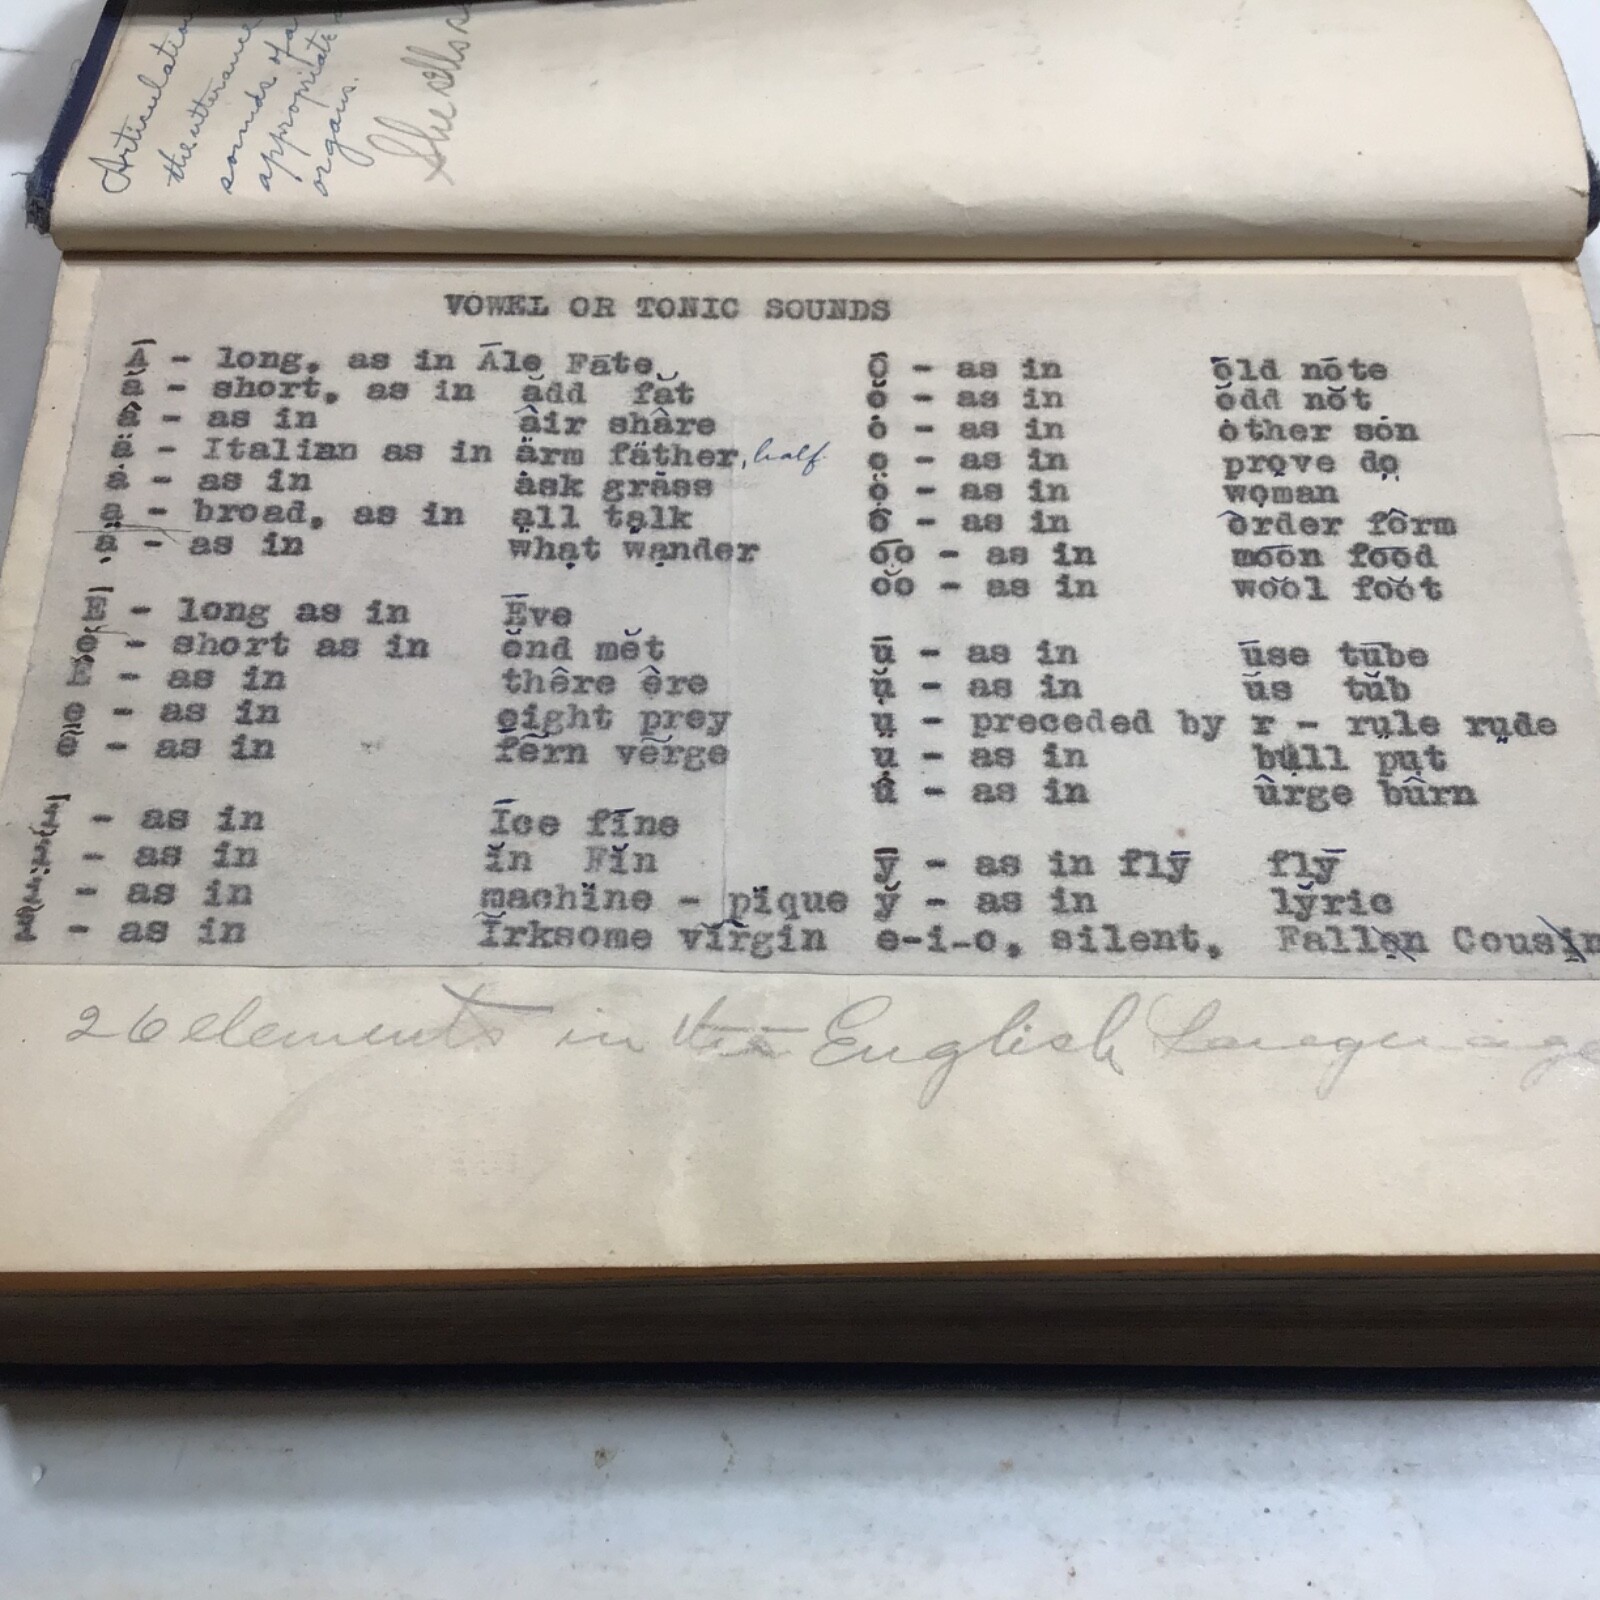 Articulation
the utterance
sounds of a
appropriate
organs.
She sells
VOWEL OR TONIC SOUNDS
Ā - long, as in Āle Fāte
ă - short, as in ădd făt
â - as in âir shâre
ä - Italian as in ärm fäther, half
ȧ - as in ȧsk grȧss
a̤ - broad, as in a̤ll ta̤lk
ạ - as in whạt wạnder
Ē - long as in Ēve
ĕ - short as in ĕnd mĕt
Ê - as in thêre êre
e̱ - as in e̱ight pre̱y
ẽ - as in fẽrn vẽrge
Ī - as in Īce fīne
ĭ - as in ĭn Fĭn
ï - as in machïne - pïque
ĩ - as in Ĩrksome vĩrgin
Ō - as in ōld nōte
ŏ - as in ŏdd nŏt
ȯ - as in ȯther sȯn
o̤ - as in pro̤ve do̤
ọ - as in wọman
ô - as in ôrder fôrm
o͞o - as in mo͞on fo͞od
o͝o - as in wo͝ol fo͝ot
ū - as in ūse tūbe
ŭ - as in ŭs tŭb
ṳ - preceded by r - rṳle rṳde
ụ - as in bụll pụt
û - as in ûrge bûrn
ȳ - as in flȳ flȳ
y̆ - as in ly̆ric
e-i-o, silent, Fallen Cousin
26 elements in the English Language